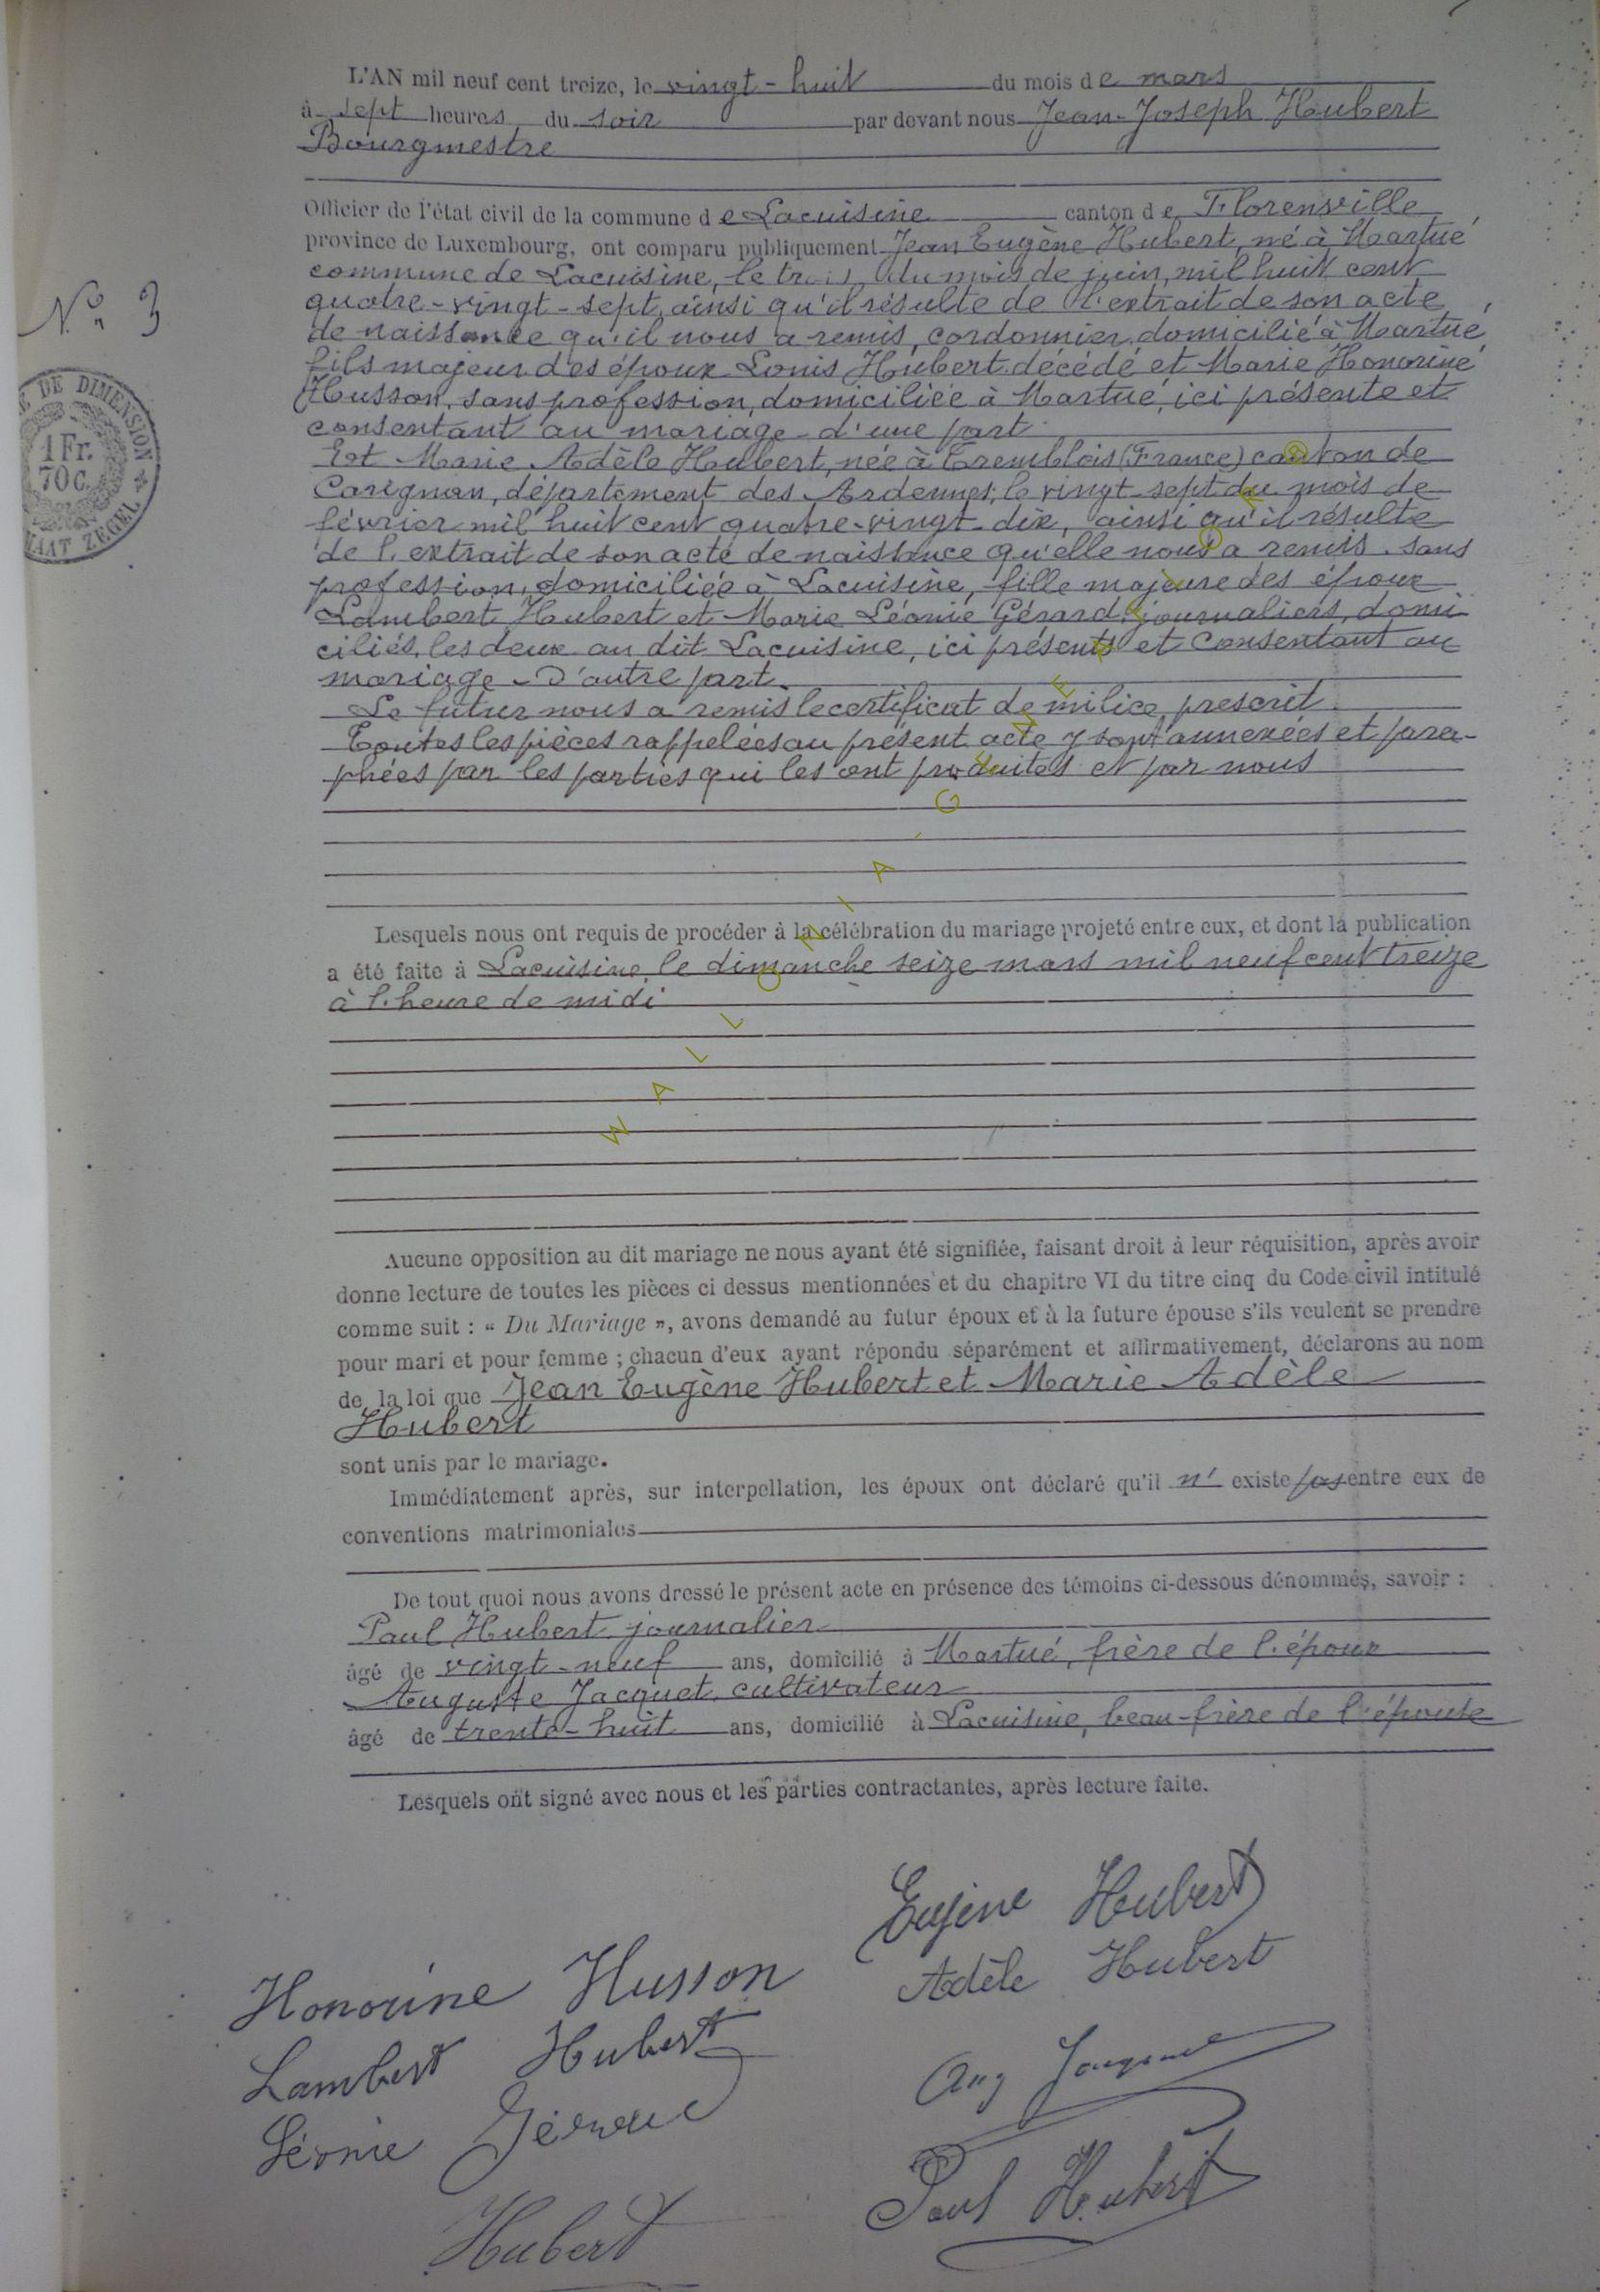 L'AN mil neuf cent treize, le vingt-huit du mois de mars
à sept heures du soir par devant nous Jean-Joseph Hubert
Bourgmestre
Officier de l'état civil de la commune de Lacuisine canton de Florenville
province de Luxembourg, ont comparu publiquement Jean Eugène Hubert, né à Martué
commune de Lacuisine, le trois du mois de juin, mil huit cent
quatre-vingt-sept, ainsi qu'il résulte de l'extrait de son acte
de naissance qu'il nous a remis, cordonnier, domicilié à Martué,
N° 3
fils majeur des époux Louis Hubert décédé et Marie Honorine
Husson, sans profession, domiciliée à Martué, ici présente et
consentant au mariage d'une part
E DE DIMENSION
1 Fr.
70 c.
MAAT ZEGEL
Et Marie Adèle Hubert, née à Tremblois (France) canton de
Carignan, département des Ardennes, le vingt-sept du mois de
février mil huit cent quatre-vingt-dix, ainsi qu'il résulte
de l'extrait de son acte de naissance qu'elle nous a remis. sans
profession, domiciliée à Lacuisine, fille majeure des époux
Lambert Hubert et Marie Léonie Gérard, journaliers, domi
ciliés, les deux au dit Lacuisine, ici présents et consentant au
mariage - D'autre part.
Le futur nous a remis le certificat de milice prescrit
Toutes les pièces rappelées au présent acte y sont annexées et para-
phées par les parties qui les ont produites et par nous
Lesquels nous ont requis de procéder à la célébration du mariage projeté entre eux, et dont la publication
a été faite à Lacuisine, le dimanche seize mars mil neuf cent treize
à l'heure de midi
WALLONIA-GENEALOGY
Aucune opposition au dit mariage ne nous ayant été signifiée, faisant droit à leur réquisition, après avoir
donne lecture de toutes les pièces ci dessus mentionnées et du chapitre VI du titre cinq du Code civil intitulé
comme suit : « Du Mariage », avons demandé au futur époux et à la future épouse s'ils veulent se prendre
pour mari et pour femme ; chacun d'eux ayant répondu séparément et affirmativement, déclarons au nom
de la loi que Jean Eugène Hubert et Marie Adèle
Hubert
sont unis par le mariage.
Immédiatement après, sur interpellation, les époux ont déclaré qu'il n' existe pas entre eux de
conventions matrimoniales
De tout quoi nous avons dressé le présent acte en présence des témoins ci-dessous dénommés, savoir :
Paul Hubert journalier
âgé de vingt-neuf ans, domicilié à Martué, frère de l'époux
Auguste Jacquet, cultivateur
âgé de trente-huit ans, domicilié à Lacuisine, beau-frère de l'épouse
Lesquels ont signé avec nous et les parties contractantes, après lecture faite.
Eugène Hubert
Adèle Hubert
Honorine Husson
Lambert Hubert
Aug Jacquet
Léonie Gérard
Paul Hubert
Hubert